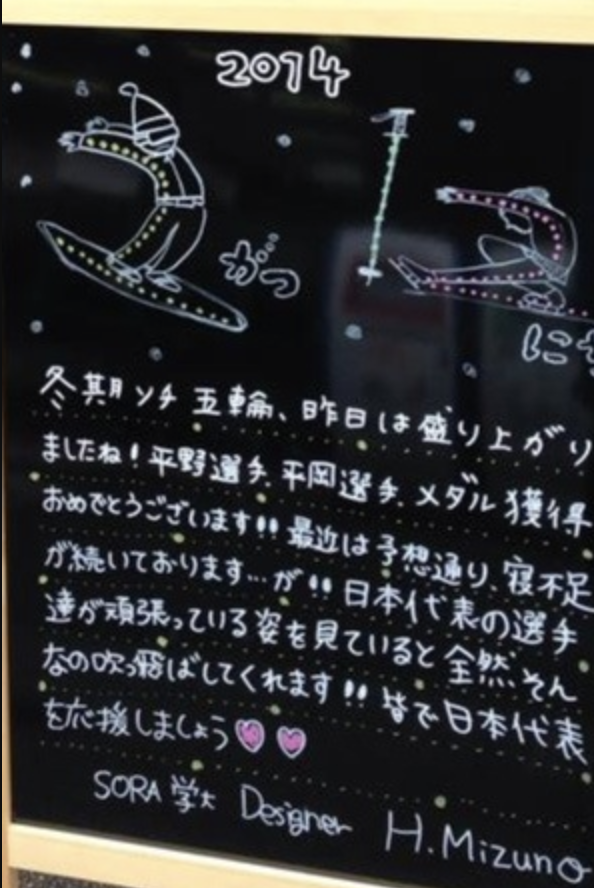 2014
がっ
にこ
冬期ソチ五輪、昨日は盛り上がり
ましたね!平野選手、平岡選手、メダル獲得
おめでとうございます!!最近は予想通り、寝不足
が続いております…が!!日本代表の選手
達が頑張っている姿を見ていると全然、そん
なの吹っ飛ばしてくれます!!皆で日本代表
を応援しましょう
SORA 学大 Designer H.Mizuno